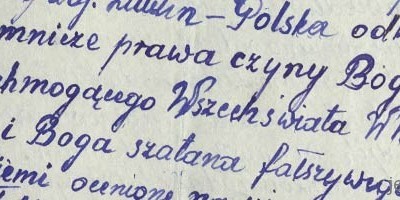 Lublin – Polska od
mnicze prawa czyny Bog
chmogącego Wszechświata W
i Boga szatana fałszywego
iemi ocenione